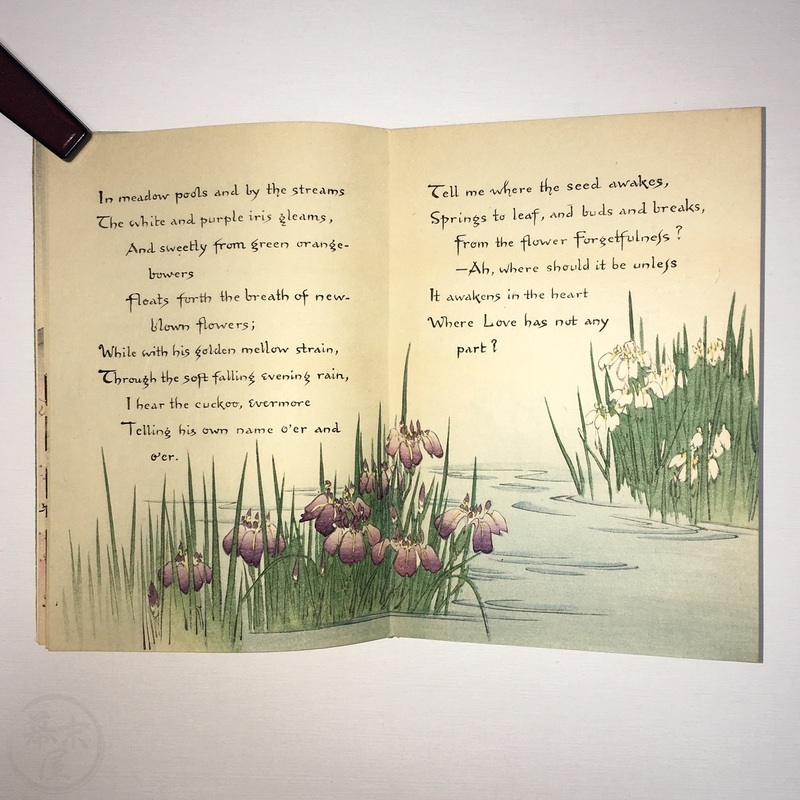 In meadow pools and by the streams
The white and purple iris gleams,
And sweetly from green orange-
bowers
floats forth the breath of new-
blown flowers;
While with his golden mellow strain,
Through the soft falling evening rain,
I hear the cuckoo, evermore
Telling his own name o'er and
o'er.
Tell me where the seed awakes,
Springs to leaf, and buds and breaks,
From the flower Forgetfulneſs?
—Ah, where should it be unleſs
It awakens in the heart
Where Love has not any
part?